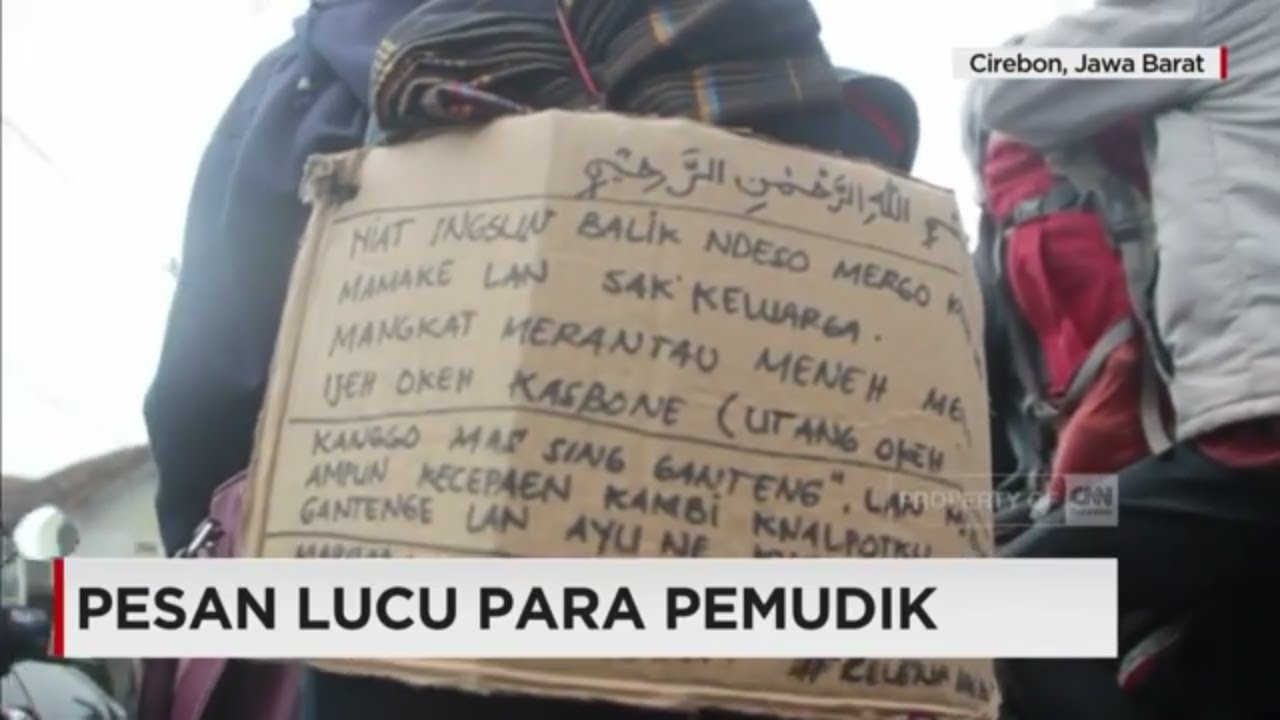 Cirebon, Jawa Barat
اللهِ الرَّحْمٰنِ الرَّحِيْمِ
NIAT INGSUN BALIK NDESO MERGO
MAMAKE LAN SAK KEWARGA.
MANGKAT MERANTAU MENEH ME
IJEH OKEH KASBONE (UTANG OKEH
KANGGO MAS SING GANTENG", LAN
AMPUN KECEPAEN KAMBI KNALPOTKU
GANTENGE LAN AYU NE
PROPERTY OF CNN
PESAN LUCU PARA PEMUDIK